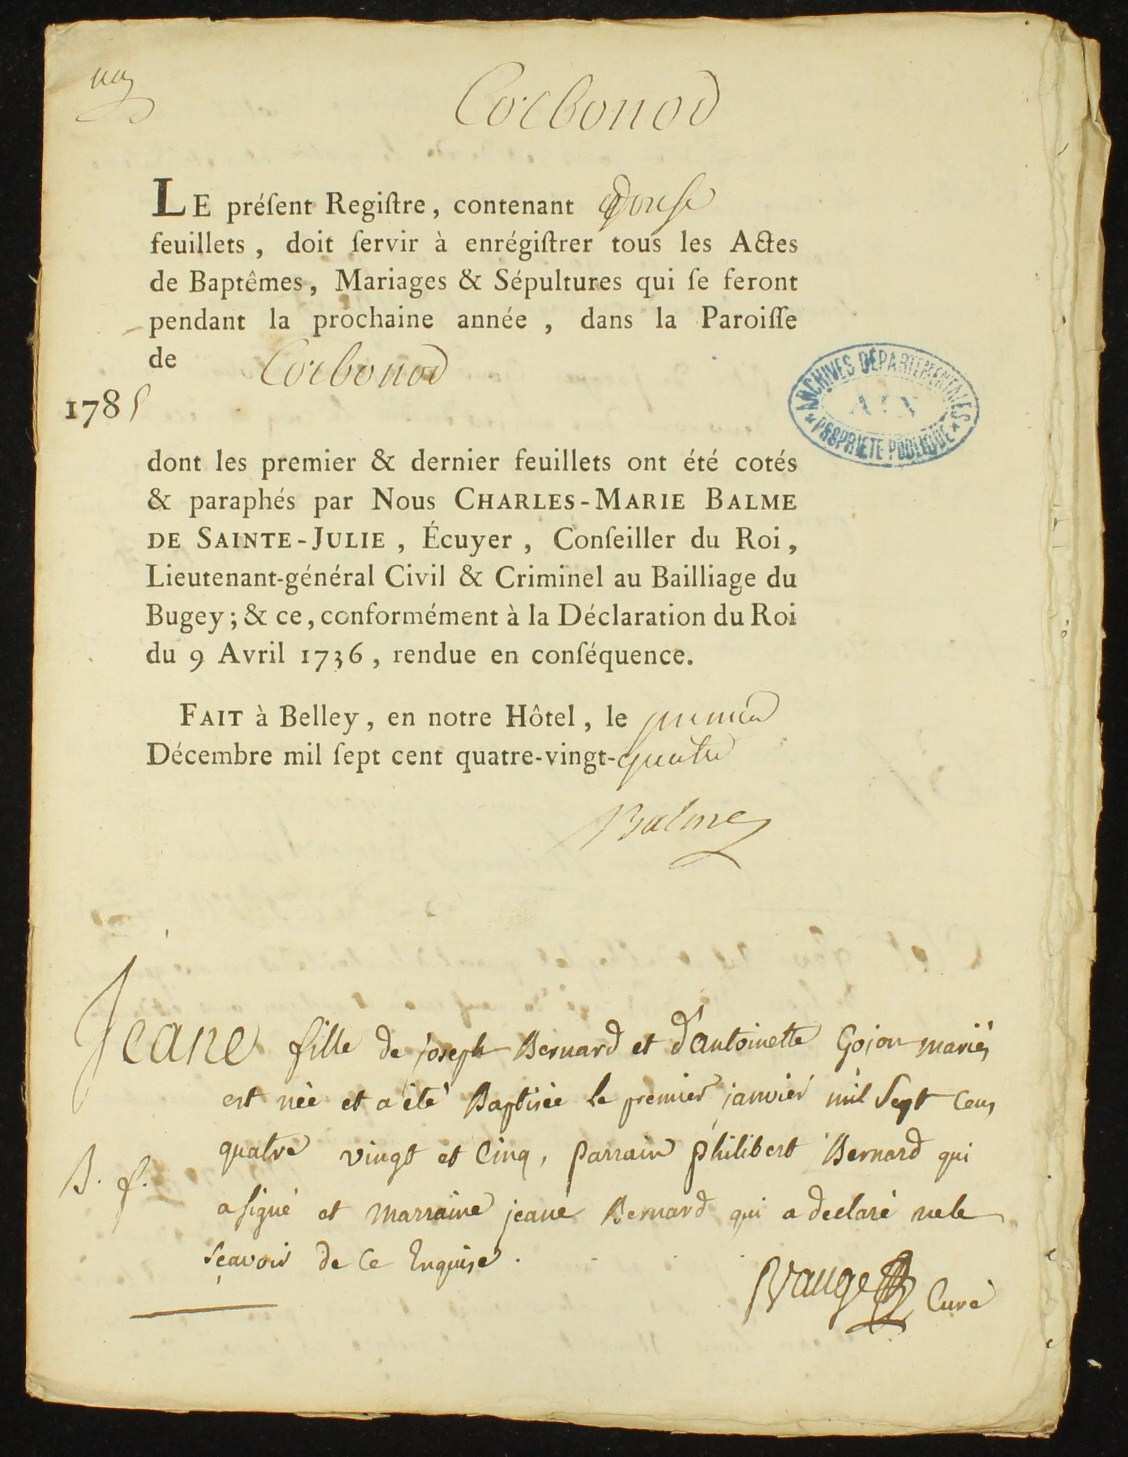 un
Corbonod
LE préſent Regiſtre, contenant Douse
feuillets, doit ſervir à enrégiſtrer tous les Actes
de Baptêmes, Mariages & Sépultures qui ſe feront
pendant la prochaine année, dans la Paroiſſe
de Corbonod
1785
ARCHIVES DÉPARTEMENTALES
AIN
PROPRIÉTÉ PUBLIQUE
dont les premier & dernier feuillets ont été cotés
& paraphés par Nous CHARLES-MARIE BALME
DE SAINTE-JULIE, Écuyer, Conſeiller du Roi,
Lieutenant-général Civil & Criminel au Bailliage du
Bugey; & ce, conformément à la Déclaration du Roi
du 9 Avril 1736, rendue en conſéquence.
FAIT à Belley, en notre Hôtel, le premier
Décembre mil ſept cent quatre-vingt-quatre
Balme
Jeane fille de joseph Bernard et d'antoinette Gojon mariés
est née et a été Baptisée le premier janvier mil Sept Cens
quatre vingt et Cinq, parrain philibert Bernard qui
B. f.
a signé et marraine jeane Bernard qui a declaré ne le
sçavoir de ce Enquise.
Vauge Curé